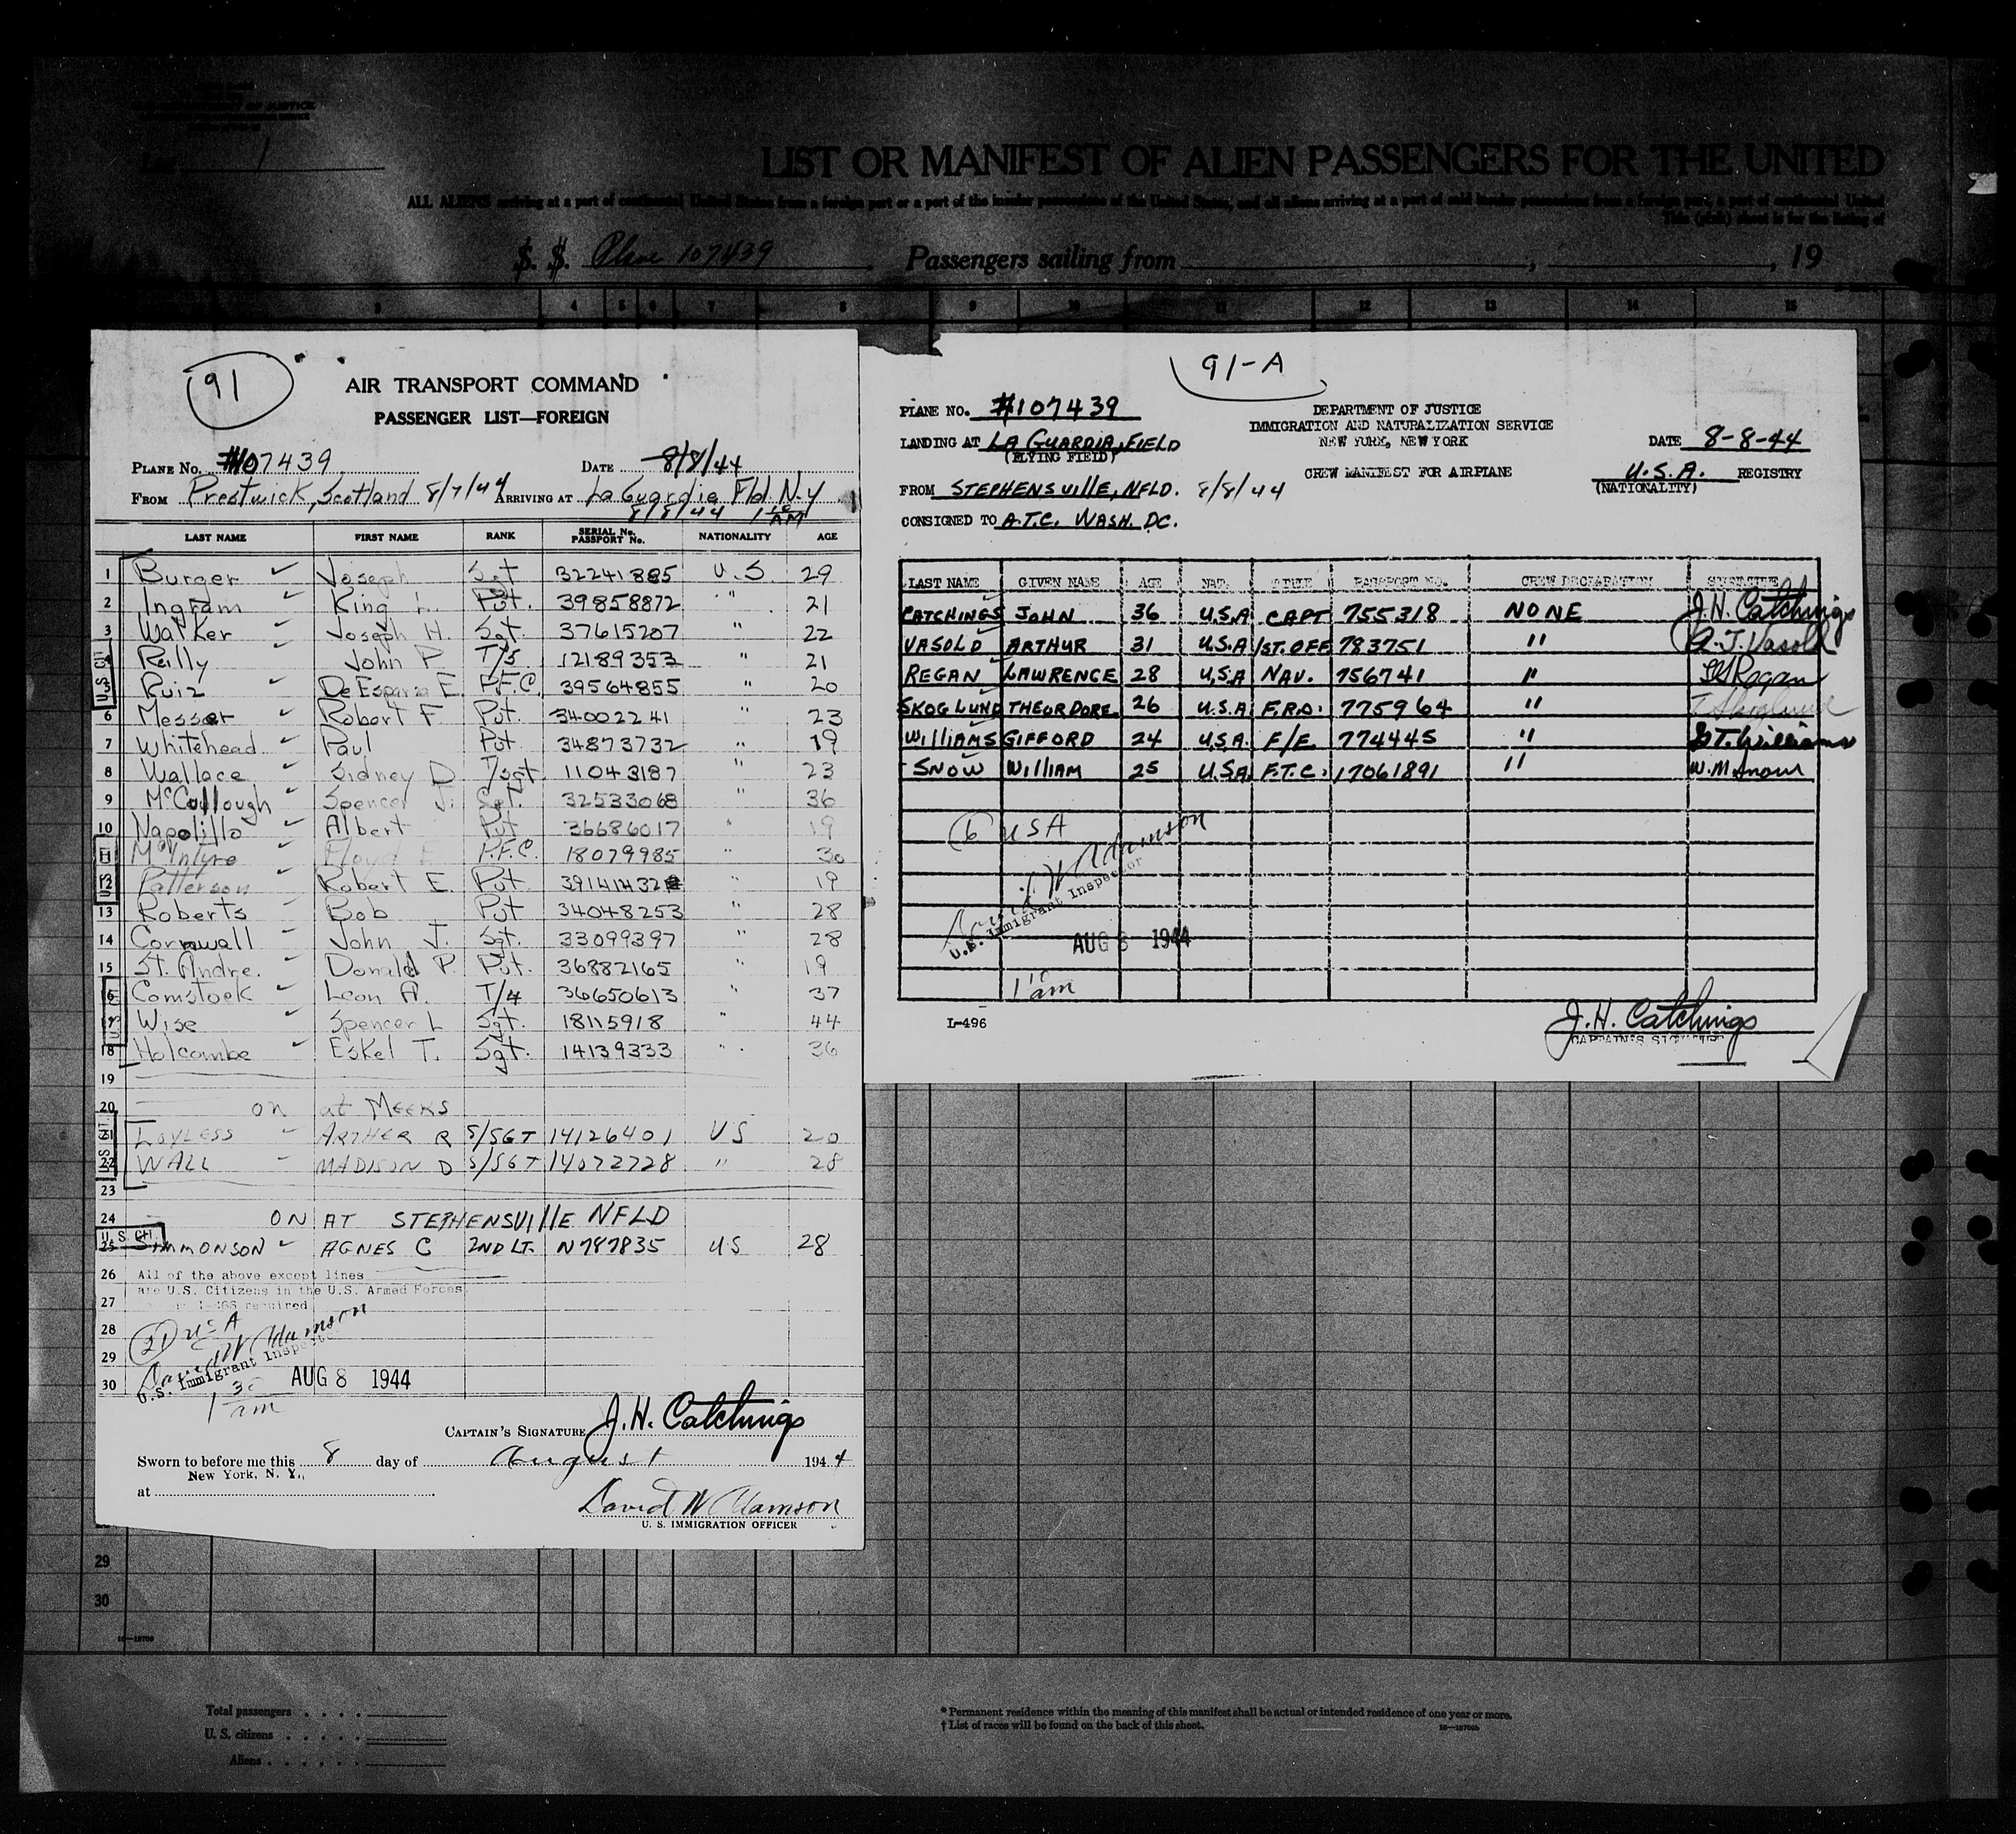 OF JUSTICE
List 1
LIST OR MANIFEST OF ALIEN PASSENGERS FOR THE UNITED
ALL ALIENS arriving at a port of continental United States from a foreign port or a port of the insular possessions of the United States, and all aliens arriving at a port of said insular possessions from a foreign port, a port of continental United
S. S. Plane 107439 Passengers sailing from , , 19
3 4 5 6 7 8 9 10 11 12 13 14 15
91
AIR TRANSPORT COMMAND
PASSENGER LIST—FOREIGN
PLANE No. #107439 DATE 8/8/44
FROM Prestwick, Scotland 8/7/44 ARRIVING AT La Guardia Fld N.Y
8/8/44 1 10 AM
LAST NAME FIRST NAME RANK SERIAL No. PASSPORT No. NATIONALITY AGE
1 Burger Joseph Sgt 32241885 U.S. 29
2 Ingram King L. Pvt. 39858872 " 21
3 Walker Joseph H. Sgt. 37615207 " 22
Reilly John P T/5 12189353 " 21
Ruiz De Esparza E. P.F.C. 39564855 " 20
6 Messer Robert F Pvt. 34002241 " 23
7 Whitehead Paul Pvt 34873732 " 19
8 Wallace Sidney D T/sgt 11043187 " 23
9 McCullough Spencer J. Sgt. 32533068 " 36
10 Napolillo Albert Pvt 36686017 " 19
11 McIntyre Floyd E P.F.C. 18079985 " 30
12 Patterson Robert E. Pvt 39141432 " 19
13 Roberts Bob Pvt 34048253 " 28
14 Cornwall John J. Sgt. 33099397 " 28
15 St. Andre. Donald P. Pvt. 36882165 " 19
16 Comstock Leon A. T/4 36650613 " 37
17 Wise Spencer L Sgt. 18115918 " 44
18 Holcombe Eskel T. Sgt. 14139333 " 36
19
20 on at MEEKS
21 LOYLESS ARTHER R S/SGT 14126401 US 20
22 WALL MADISON D S/SGT 14072728 " 28
23
24 ON AT STEPHENSVIllE NFLD
U.S. CIT.
25 SIMMONSON AGNES C 2ND LT. N787835 US 28
26 All of the above except lines
are U.S. Citizens in the U.S. Armed Forces
27 required
28 (21) USA
29 David W Adamson
U.S. Immigrant Inspector
30 AUG 8 1944
1 30 am
CAPTAIN'S SIGNATURE J.H. Catchings
Sworn to before me this 8 day of August 1944
New York, N. Y.,
at
David W Adamson
U. S. IMMIGRATION OFFICER
91-A
PLANE NO. #107439
DEPARTMENT OF JUSTICE
IMMIGRATION AND NATURALIZATION SERVICE
NEW YORK, NEW YORK
LANDING AT LA GUARDIA FIELD DATE 8-8-44
(FLYING FIELD)
CREW MANIFEST FOR AIRPLANE U.S.A. REGISTRY
(NATIONALITY)
FROM STEPHENSVIllE, NFLD. 8/8/44
CONSIGNED TO A.T.C. WASH. DC.
LAST NAME GIVEN NAME AGE NAT. TITLE PASSPORT NO. CREW DECLARATION SIGNATURE
CATCHINGS JOHN 36 U.S.A CAPT 755318 NONE J.H. Catchings
VASOLD ARTHUR 31 U.S.A 1ST. OFF 783751 " A. J. Vasold
REGAN LAWRENCE 28 U.S.A NAV. 756741 " Regan
SKOGLUND THEORDORE 26 U.S.A F.R.O. 775964 " T Skoglund
WILLIAMS GIFFORD 24 U.S.A. F/E. 774445 " G T. Williams
SNOW WILLIAM 25 U.S.A F.T.C. 17061891 " W. M Snow
(6) USA
David W Adamson
U.S. Immigrant Inspector
AUG 8 1944
1 10 am
L-496
J.H. Catchings
CAPTAIN'S SIGNATURE
29
30
16—18709
Total passengers
U. S. citizens
Aliens
* Permanent residence within the meaning of this manifest shall be actual or intended residence of one year or more.
† List of races will be found on the back of this sheet.